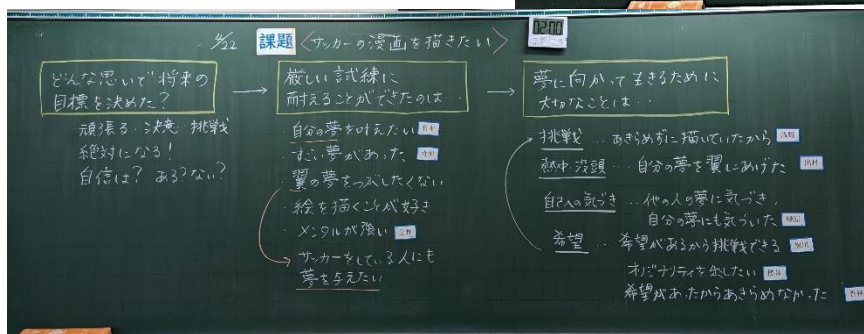 4/22 課題 〈サッカーの漫画を描きたい〉
02:00
どんな思いで将来の
目標を決めた?
頑張る・決意・挑戦
絶対になる!
自信は? ある?ない?
→
厳しい試練に
耐えることができたのは…
・自分の夢を叶えたい
・すごい夢があった
・翼の夢をつぶしたくない
・絵を描くことが好き
・メンタルが強い
サッカーをしている人にも
夢を与えたい
→
夢に向かって生きるために
大切なことは…
挑戦…あきらめずに描いていたから
熱中・没頭…自分の夢を翼にあげた
自己への気づき…他の人の夢に気づき、
自分の夢にも気づいた
希望…希望があるから挑戦できる
オリジナリティを出したい
希望があったからあきらめなかった